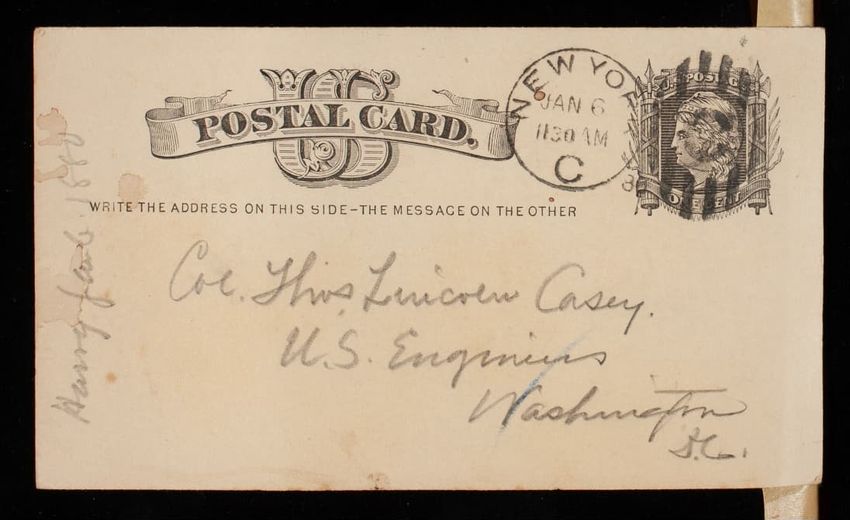 US
POSTAL CARD.
WRITE THE ADDRESS ON THIS SIDE-THE MESSAGE ON THE OTHER
NEW YORK
JAN 6
1130 AM
C
Col. Thos. Lincoln Casey.
U.S. Engineers
Washington
D.C.
Harry Jan 6 1880